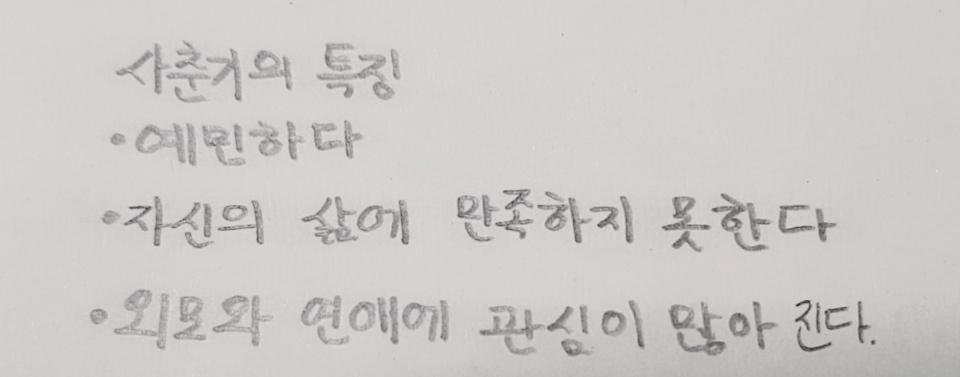 사춘기의 특징
•예민하다
•자신의 삶에 만족하지 못한다
•외모와 연애에 관심이 많아 진다.